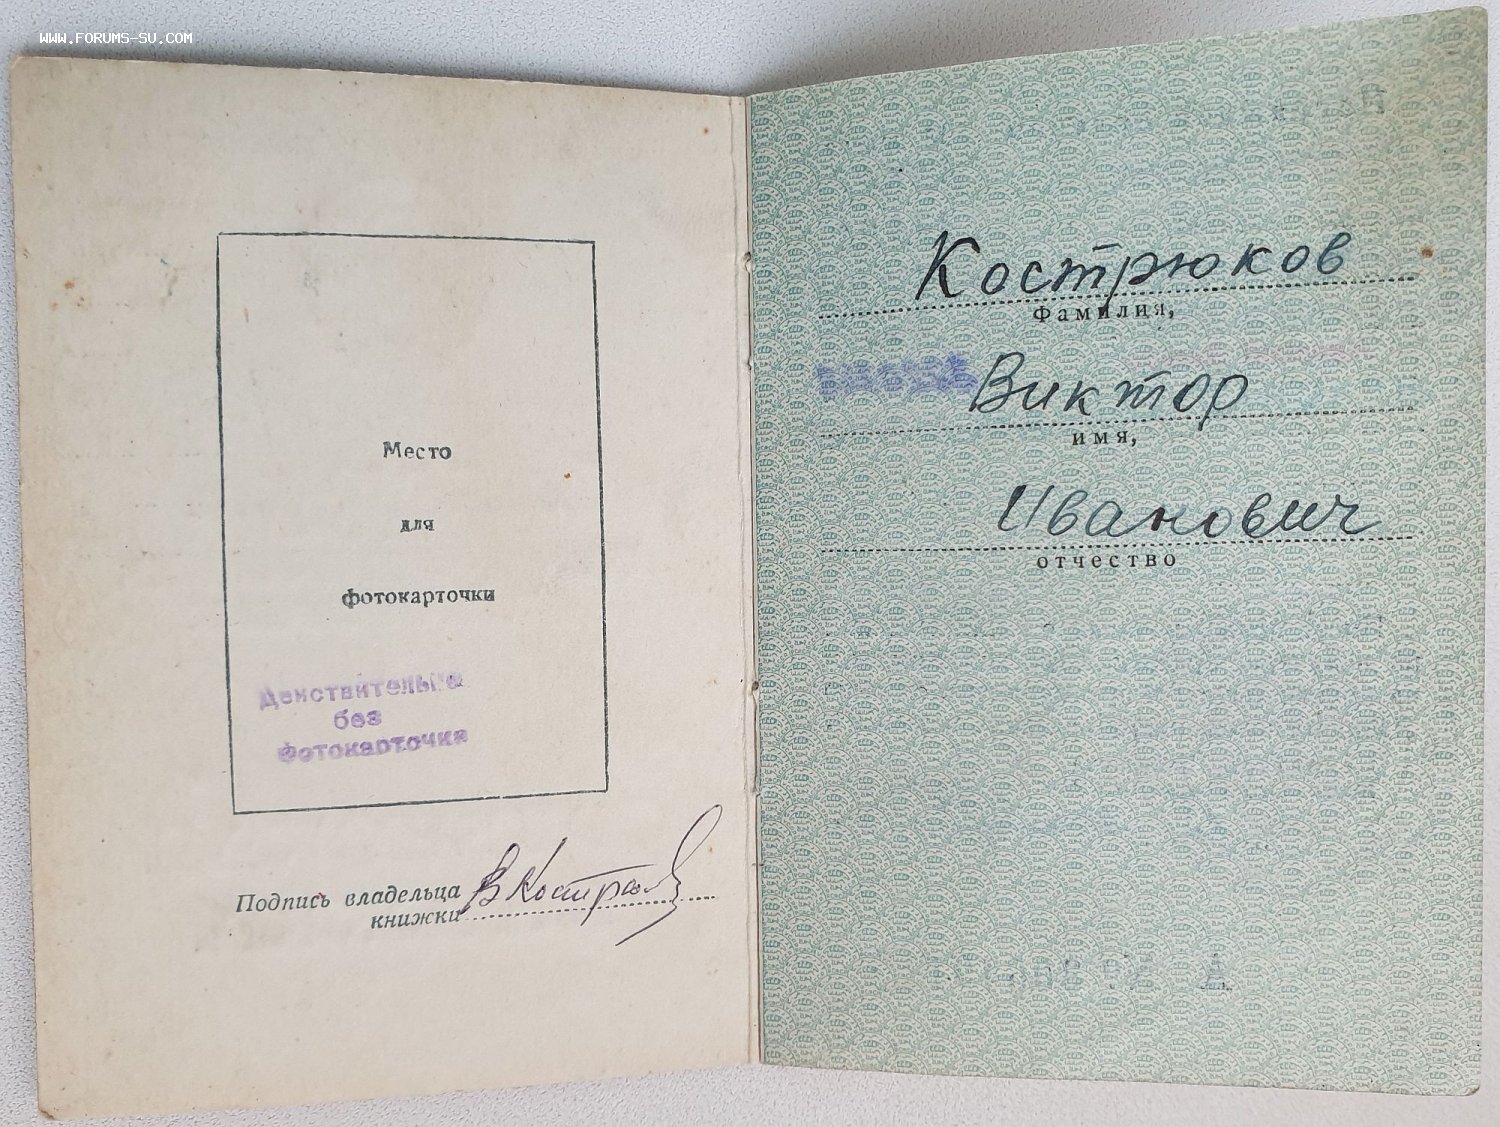 WWW.FORUMS-SU.COM
Место
для
фотокарточки
Действительна
без
Фотокарточки
Подпись владельца
книжки
В Кострюков
Кострюков
Фамилия,
Виктор
имя,
Иванович
отчество